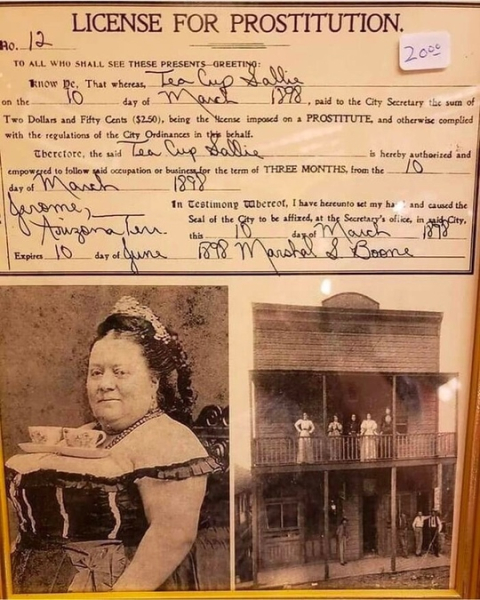 LICENSE FOR PROSTITUTION.
No. 12
20⁰⁰
TO ALL WHO SHALL SEE THESE PRESENTS GREETING:
Know Ye, That whereas, Tea Cup Sallie
on the 10 day of March 1898, paid to the City Secretary the sum of
Two Dollars and Fifty Cents ($2.50), being the license imposed on a PROSTITUTE, and otherwise complied
with the regulations of the City Ordinances in this behalf.
Therefore, the said Tea Cup Sallie is hereby authorized and
empowered to follow said occupation or business for the term of THREE MONTHS, from the 10
day of March 1898
Jerome,
Arizona Terr.
In Testimony Whereof, I have hereunto set my hand and caused the
Seal of the City to be affixed, at the Secretary's office, in said City,
this 10 day of March 1898
Expires 10 day of June 1898 Marshal S. Boone